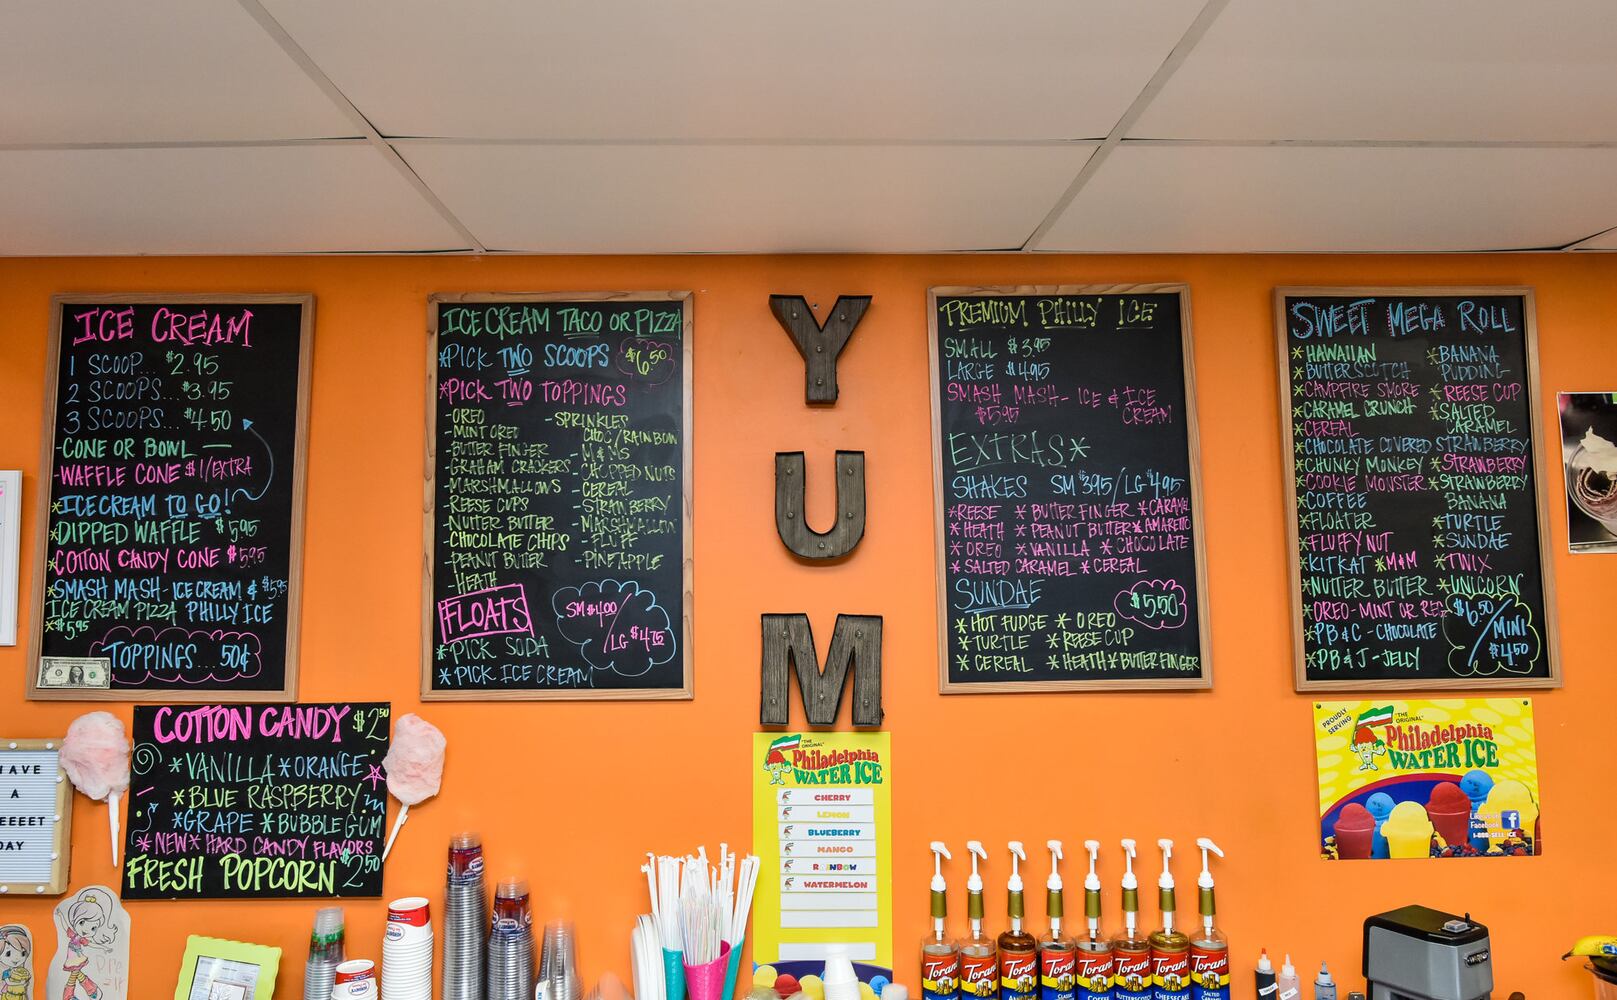 ICE CREAM
1 SCOOP... $2.95
2 SCOOPS... $3.95
3 SCOOPS... $4.50
-CONE OR BOWL-
-WAFFLE CONE $1/EXTRA
*ICE CREAM TO GO!
*DIPPED WAFFLE $5.95
*COTTON CANDY CONE $5.95
*SMASH MASH- ICE CREAM & $5.95
PHILLY ICE
*ICE CREAM PIZZA
$5.95
TOPPINGS... 50¢
ICE CREAM TACO OR PIZZA
*PICK TWO SCOOPS $6.50
*PICK TWO TOPPINGS
-OREO
-MINT OREO
-BUTTER FINGER
-GRAHAM CRACKERS
-MARSHMALLOWS
-REESE CUPS
-NUTTER BUTTER
-CHOCOLATE CHIPS
-PEANUT BUTTER
-HEATH
-SPRINKLES
CHOC/RAINBOW
-M & MS
-CHOPPED NUTS
-CEREAL
-STRAWBERRY
-MARSHMALLOW
-FLUFF
-PINEAPPLE
FLOATS
*PICK SODA
*PICK ICE CREAM
SM $4.00/
LG $4.75
YUM
PREMIUM PHILLY ICE
SMALL $3.95
LARGE $4.95
SMASH MASH- ICE & ICE
CREAM
$5.95
EXTRAS*
SHAKES SM 3.95/LG $4.95
*REESE *BUTTER FINGER *CARAMEL
*HEATH *PEANUT BUTTER *AMARETTO
*OREO *VANILLA *CHOCOLATE
*SALTED CARAMEL *CEREAL
SUNDAE $5.50
*HOT FUDGE *OREO
*TURTLE *REESE CUP
*CEREAL *HEATH *BUTTER FINGER
SWEET MEGA ROLL
*HAWAIIAN
*BUTTERSCOTCH
*CAMPFIRE SMORE
*CARAMEL CRUNCH
*CEREAL
*CHOCOLATE COVERED STRAWBERRY
*CHUNKY MONKEY
*COOKIE MONSTER
*COFFEE
*FLOATER
*FLUFFY NUT
*KITKAT *M&M
*NUTTER BUTTER
*OREO-MINT OR REG
*PB & C - CHOCOLATE
*PB & J - JELLY
*BANANA
PUDDING
*REESE CUP
*SALTED
CARAMEL
*STRAWBERRY
*STRAWBERRY
BANANA
*TURTLE
*SUNDAE
*TWIX
*UNICORN
$6.50/
MINI
$4.50
COTTON CANDY $2.50
*VANILLA *ORANGE
*BLUE RASPBERRY
*GRAPE *BUBBLEGUM
*NEW* HARD CANDY FLAVORS
FRESH POPCORN $2.50
HAVE
A
EEEET
DAY
"THE ORIGINAL"
Philadelphia
WATER ICE
CHERRY
LEMON
BLUEBERRY
MANGO
RAINBOW
WATERMELON
PROUDLY
SERVING
"THE ORIGINAL"
Philadelphia
WATER ICE
Like us on
Facebook
1-888-SELL ICE
Torani
Torani
Torani
Torani
Torani
Torani
Torani
Torani
COFFEE
BUTTERSCOTCH
CHEESECAKE
SALTED